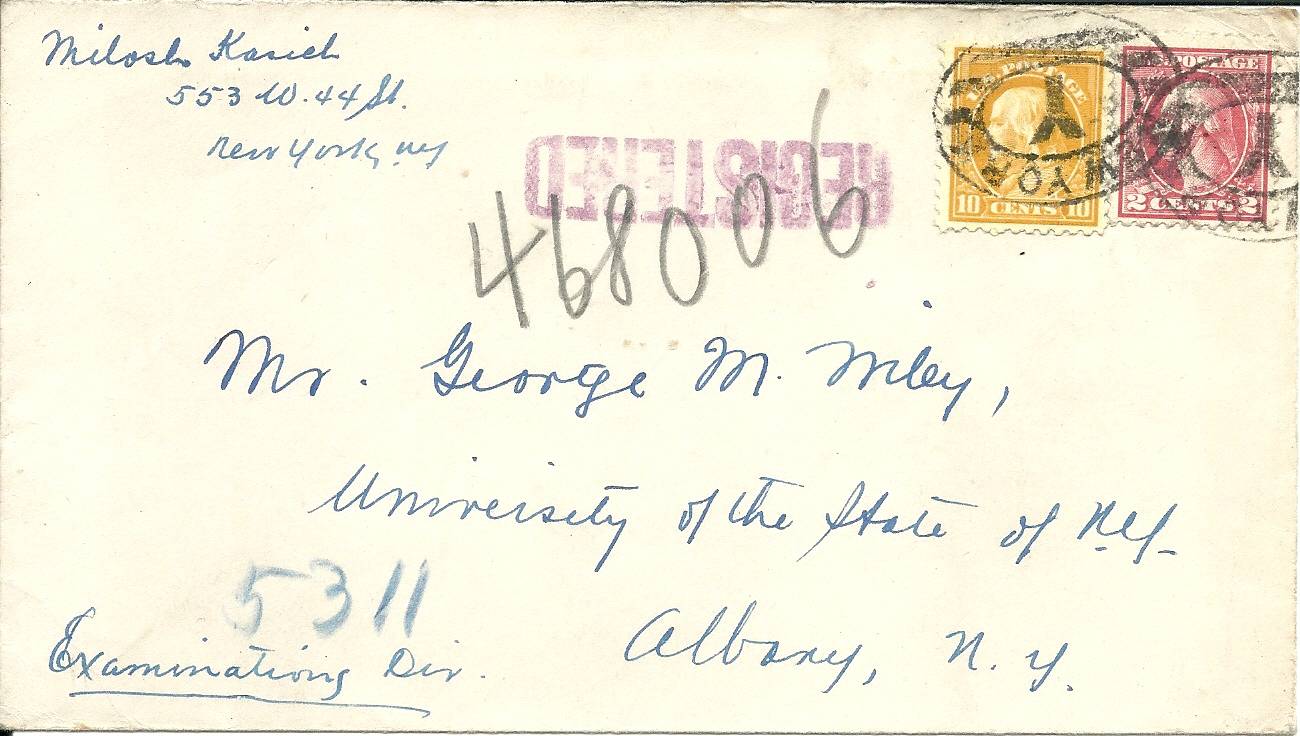 Milosh Kasich
553 W. 44 St.
New York, NY
REGISTERED
468006
U.S. POSTAGE
10 CENTS 10
POSTAGE
2 CENTS 2
Mr. George M. Wiley,
University of the State of N.Y.
Albany, N. Y.
5311
Examinations Div.